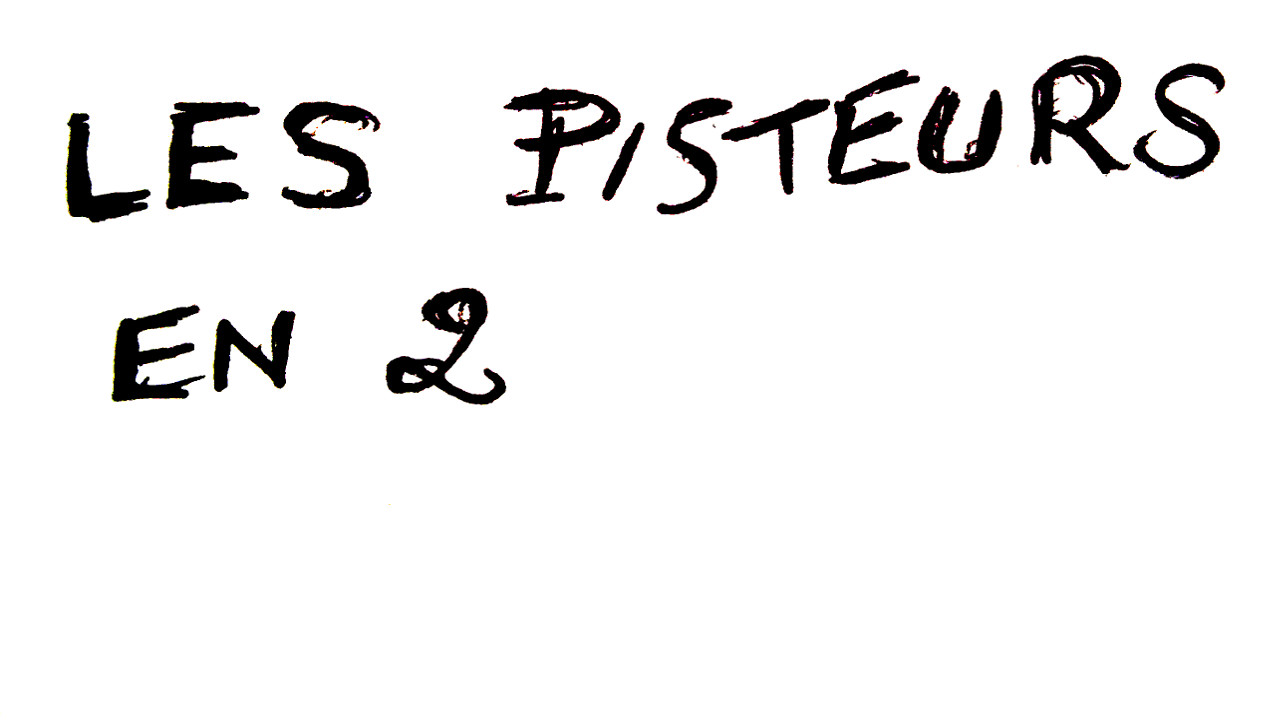 LES PISTEURS
EN 2